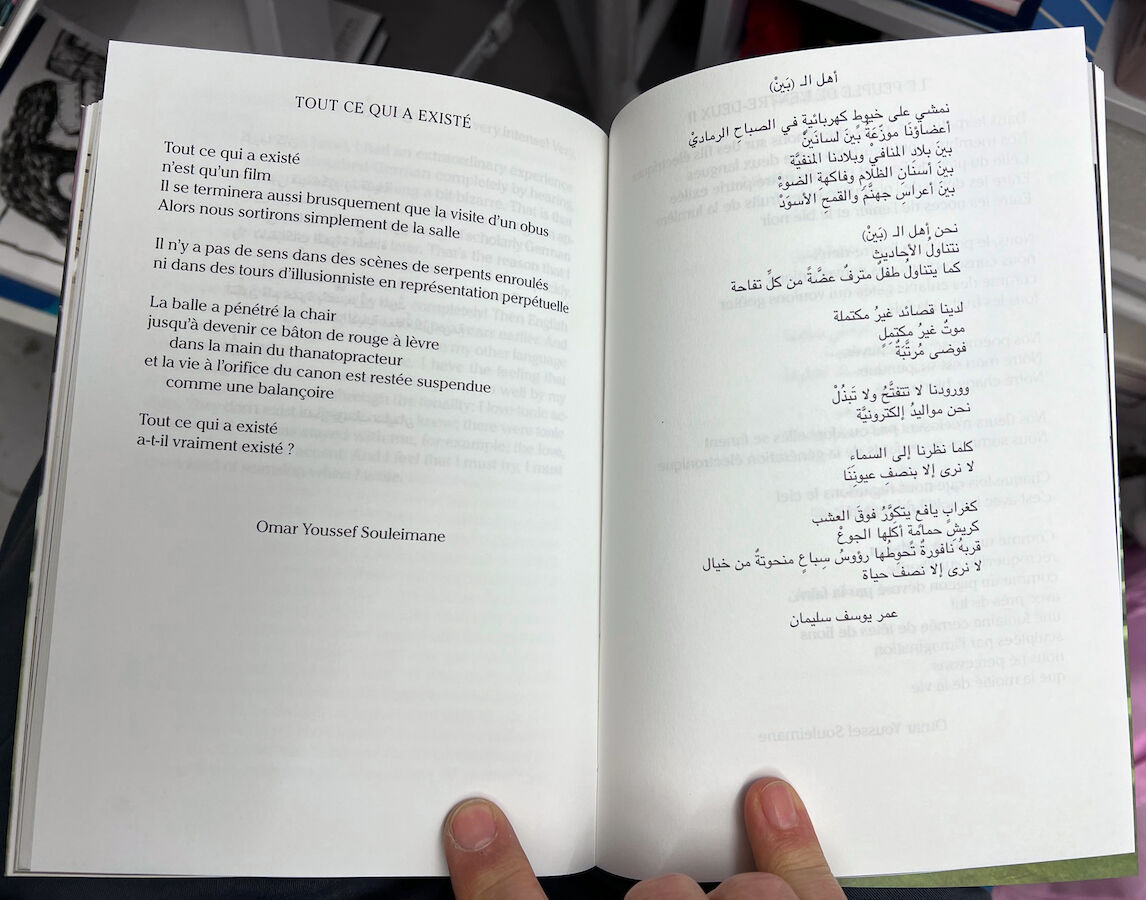 TOUT CE QUI A EXISTÉ
Tout ce qui a existé
n'est qu'un film
Il se terminera aussi brusquement que la visite d'un obus
Alors nous sortirons simplement de la salle
Il n'y a pas de sens dans des scènes de serpents enroulés
ni dans des tours d'illusionniste en représentation perpétuelle
La balle a pénétré la chair
jusqu'à devenir ce bâton de rouge à lèvre
dans la main du thanatopracteur
et la vie à l'orifice du canon est restée suspendue
comme une balançoire
Tout ce qui a existé
a-t-il vraiment existé ?
Omar Youssef Souleimane
أهل الـ (بَينْ)
نمشي على خيوطٍ كهربائيةٍ في الصباحِ الرماديْ
أعضاؤنا موزّعَةٌ بينَ لسانَينْ
بينَ بلاد المنافيْ وبلادنا المنفيَّة
بينَ أسنَانِ الظلَامِ وفاكهةِ الضوءْ
بينَ أعراسِ جهنَّمَ والقمحِ الأسوَدْ
نحن أهل الـ (بَينْ)
نتناولُ الأحاديثِ
كما يتناولُ طفلٌ مترفٌ عضَّةً من كلِّ تفاحة
لدينا قصائد غيرُ مكتملة
موتٌ غيرُ مكتملٍ
فوضى مُرتَّبَةٌ
وورودنا لا تتفتَّحُ ولا تَبذُلْ
نحن مواليدُ إلكترونيَّة
كلما نظرنا إلى السماء
لا نرى إلا بنصفِ عيونِنَا
كغرابٍ يافعٍ يتكوَّرُ فوقَ العشب
كريشِ حمامةٍ أكلَها الجوعْ
قربهُ نافورةٌ تُحوطُها رؤوسُ سِباعٍ منحوتةٌ من خيال
لا نرى إلا نصفَ حياة
عمر يوسف سليمان